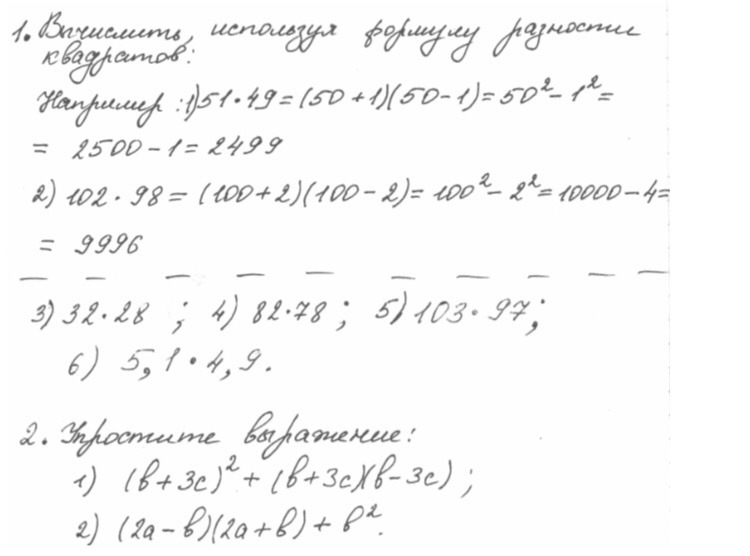 1. Вычислить, используя формулу разности
квадратов:
Например: 1) 51·49 = (50+1)(50-1) = 50² - 1² =
= 2500 - 1 = 2499
2) 102·98 = (100+2)(100-2) = 100² - 2² = 10000 - 4 =
= 9996
3) 32·28 ; 4) 82·78 ; 5) 103·97 ;
6) 5,1·4,9.
2. Упростите выражение:
1) (в+3с)² + (в+3с)(в-3с) ;
2) (2а-в)(2а+в) + в².